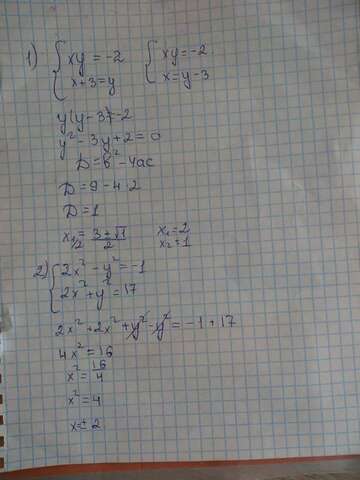 1) { xy = -2 { xy = -2
x+3=y x=y-3
y(y-3)=-2
y²-3y+2=0
D=b²-4ac
D=9-4·2
D=1
x₁/₂=3±√1/2 x₁=2
x₂=1
2) { 2x²-y²=-1
2x²+y²=17
2x²+2x²+y²-y²=-1+17
4x²=16
x²=16/4
x²=4
x=±2